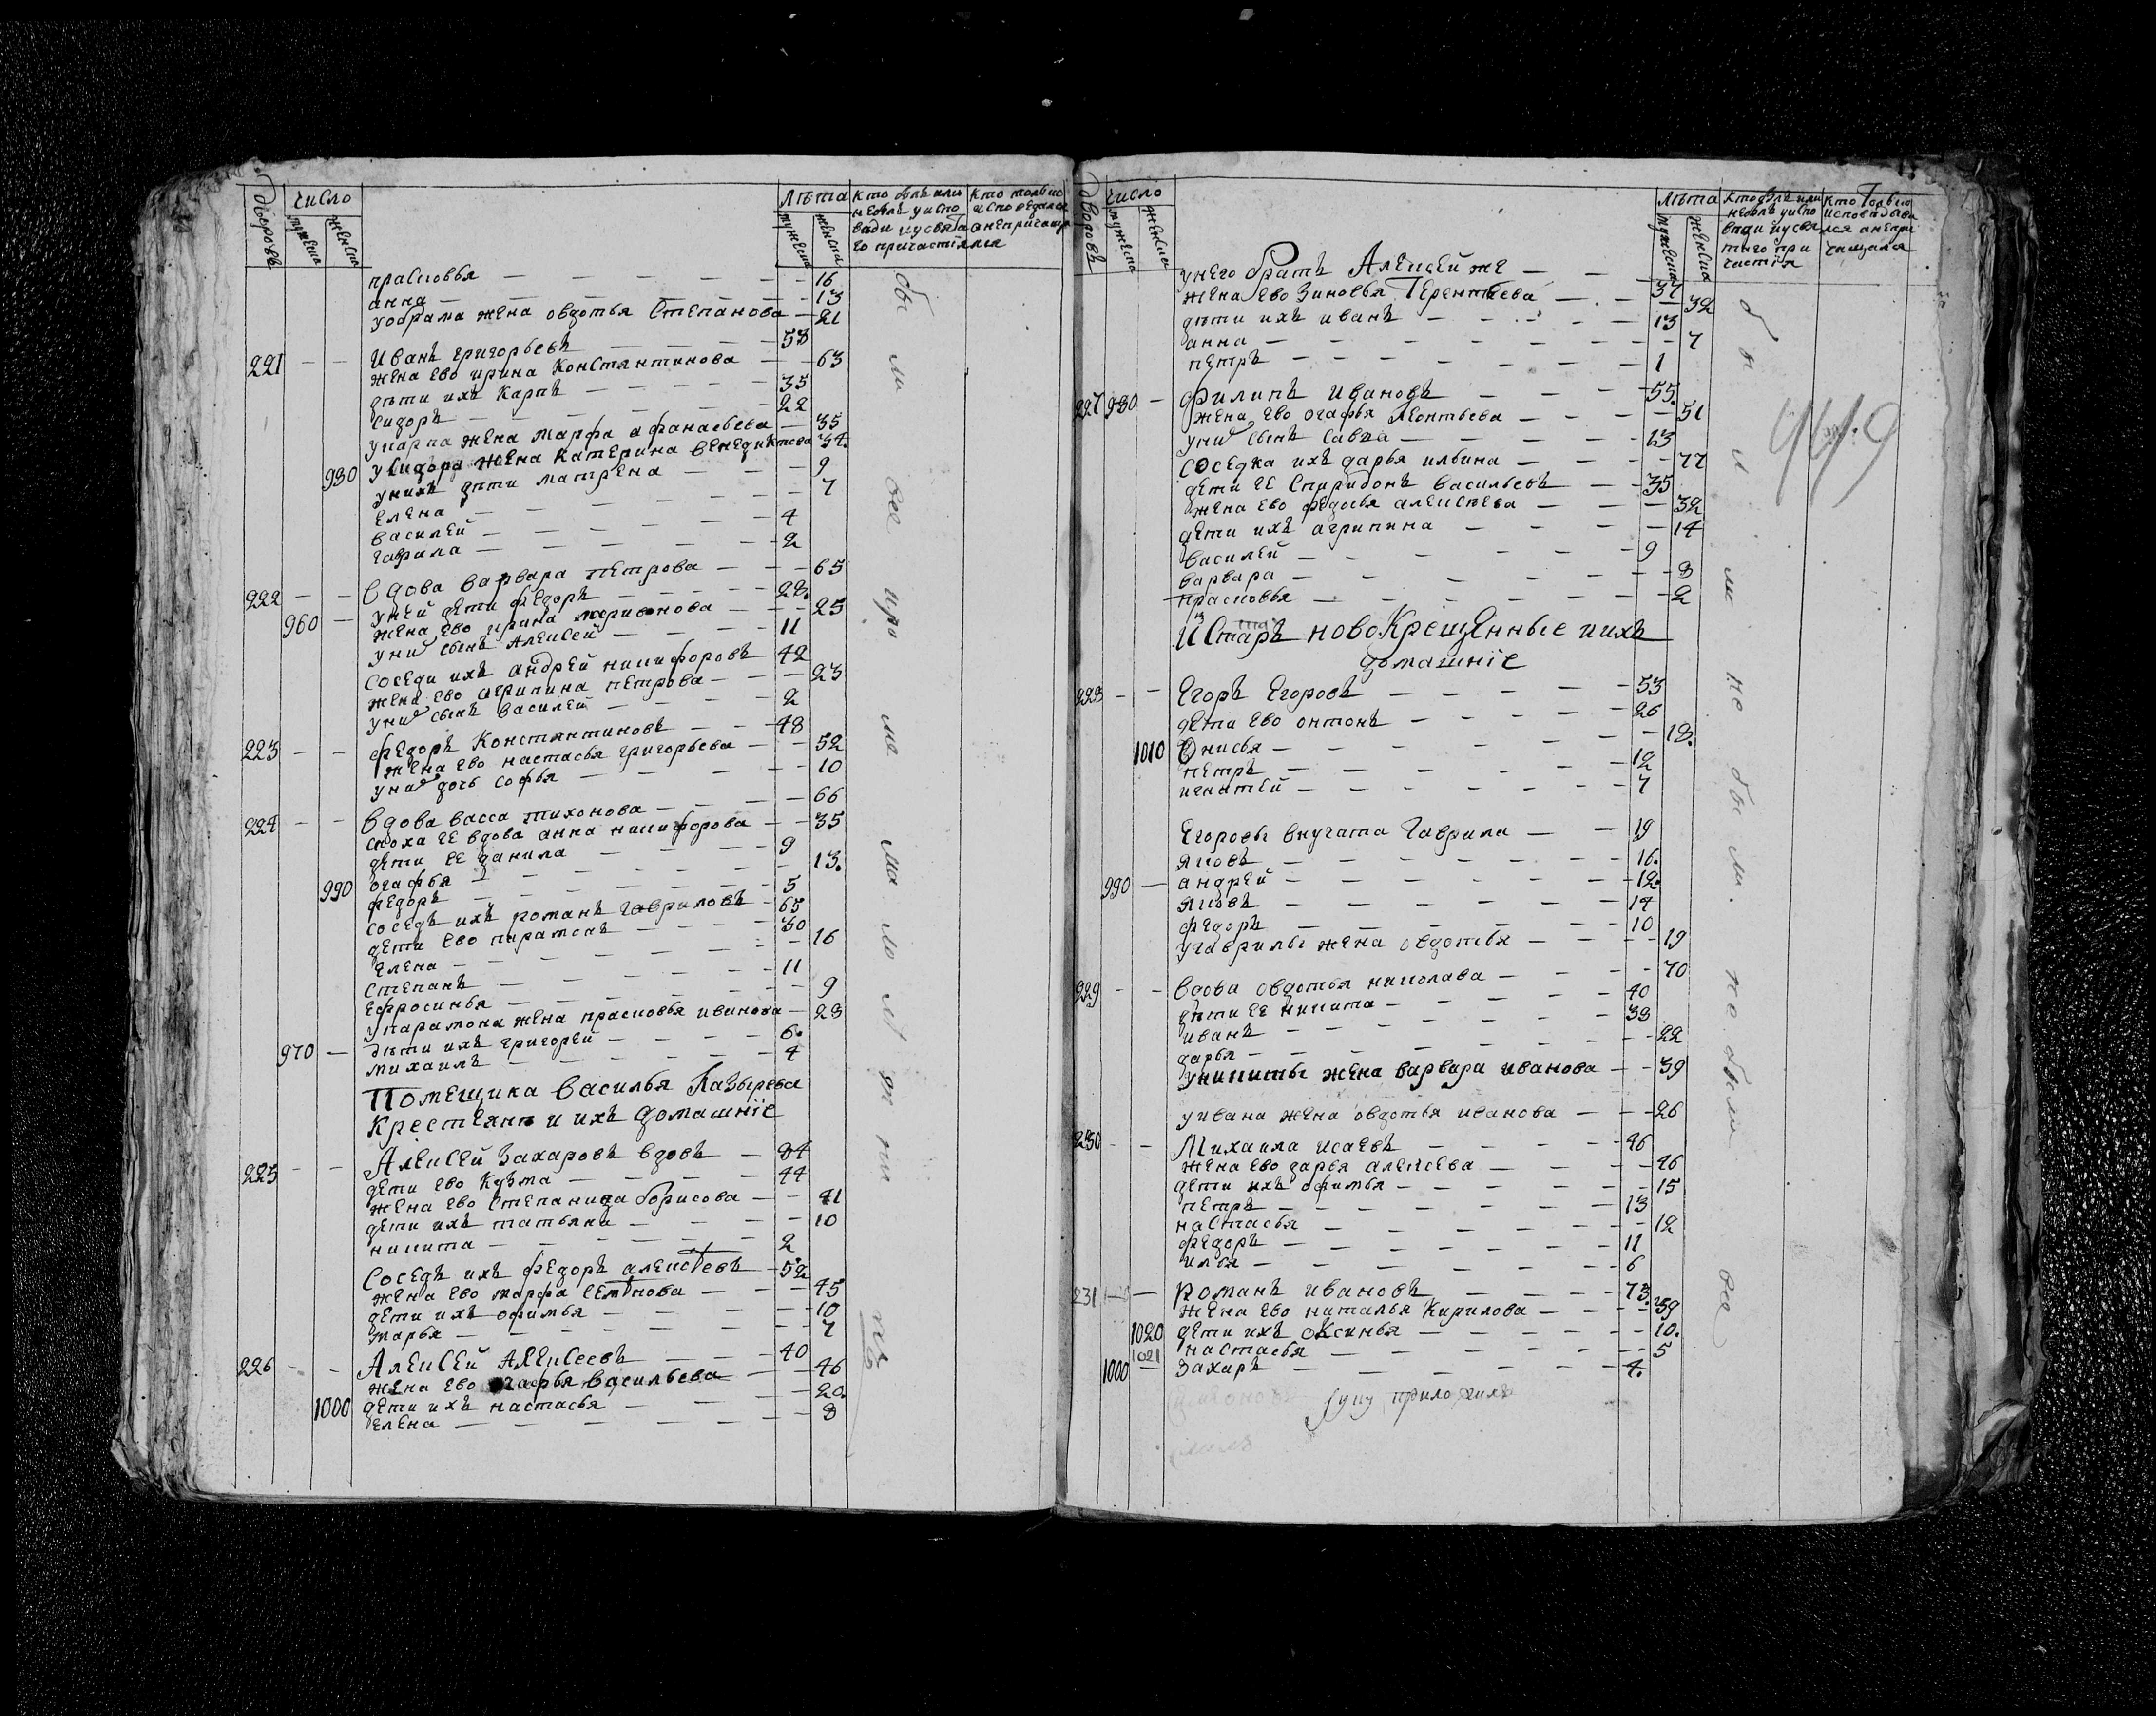 дворовъ число лѣта кто былъ или небылъ уиспо веди иусвята го причастїя кто только исповедался анепричащался
мужеска женска мужеска женска
прасковья — 16
анна — 13
уобрама жена овдотья Степанова — 21
221 — — Иванъ григорьевъ — 53
жена ево ирина Константинова — 63
дѣти ихъ Карпъ — 35
Сидоръ — 22
укарпа жена марфа афанасьева — 35
усидора жена катерина венедиктова 34.
980 унихъ дѣти матрена — 9
Елена — 7
василей — 4
гаврила — 2
222 — — Вдова варвара петрова — 65
уней дети федоръ — 22.
960 — жена ево ирина — 25
уни сынъ Алексей — 11
соседи ихъ андрей никифоровъ 42
жена ево агрипина петрова — 23
уни сынъ василей — 2
223 — — федоръ Константиновъ — 48
жена ево настасья григорьева — 52
уни дочь софья — 10
224 — — Вдова васса тихонова — 66
сноха ее вдова анна никифорова — 35
дети ее данила — 9
огафья — 13.
990 федоръ — 5
соседъ ихъ романъ гавриловъ — 65
дети ево парамонъ — 30
елена — 16
степанъ — 11
Ефросинья — 9
упарамона жена прасковья иванова — 23
дѣти ихъ григорей — 6.
970 — михаилъ — 4
Помещика василья
крестьяне и ихъ домашнїе
225 — — Алексей Захаровъ вдовъ — 84
дети ево Кузма — 44
жена ево Степанида борисова — 41
дети ихъ татьяна — 10
никита — 2
Соседъ ихъ федоръ алексеевъ — 52
жена ево марфа семенова — 45
дети ихъ офимья — 10
марья — 7
226 — — Алексей Алексеевъ — 40
жена ево огафья васильева — 46
1000 дети ихъ настасья — 20.
елена — 8
дворовъ число лѣта кто былъ или небылъ уиспо веди иусвя таго при частїя кто только исповѣдыва лся анепри чащался
мужеска женска мужеска женска
унего братъ Алексей же — 37
жена ево Зиновья Терентьева — 32
дѣти ихъ иванъ — 13
анна — 7
петръ — 1
227 980 — филипъ Ивановъ — 55.
жена ево огафья леонтьева — 51
уни сынъ савка — 23
449
соседка ихъ дарья ильина — 77
дети ее Спиридонъ васильевъ — 35
жена ево федосья алексеева — 32
дети ихъ агрипина — 14
василей — 9
варвара — 8
прасковья — 2
Истаръ новокрещенные иихъ
домашнїе
228 — — Егоръ Егоровъ — 53
дети ево онтонъ — 26
1010 Онисья — 18.
петръ — 12
игнатей — 7
Егоровы внучата Гаврила — 19
яковъ — 16.
990 — андрей — 12.
яковъ — 14
федоръ — 10
угаврилы жена овдотья — 19
229 — — Вдова овдотья николава — 70
дѣти ее никита — 40
иванъ — 38
дарья — 22
уникиты жена варвара иванова — 39
уивана жена овдотья иванова — 26
230 — — Михаила исаевъ — 46
жена ево дарья алексеева — 46
дети ихъ офимья — 15
петръ — 13
настасья — 12
федоръ — 11
илья — 6
231 — романъ ивановъ — 73.
жена ево наталья кирилова — 39
1020 дети ихъ оксинья — 10.
1021 настасья — 5
1000 — захаръ — 4.
руку приложилъ